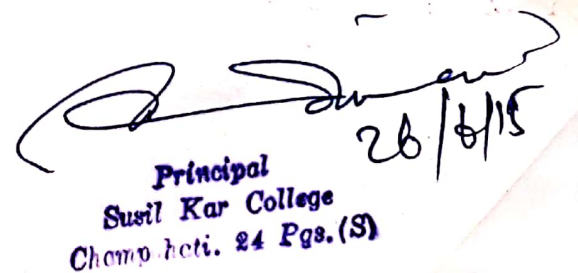 26/6/15
Principal
Susil Kar College
Champahati. 24 Pgs. (S)